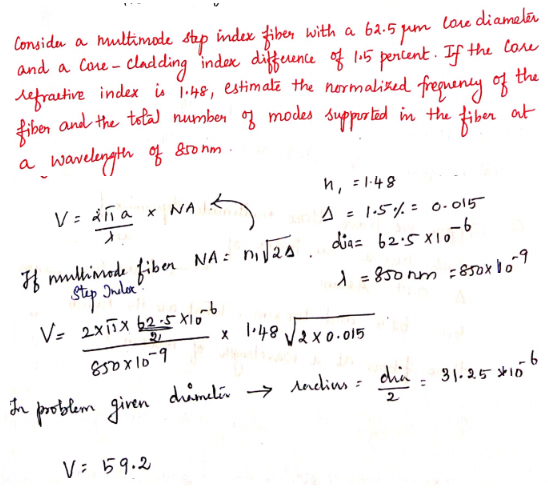 Consider a multimode step index fiber with a 62.5 µm core diameter
and a Core-Cladding index difference of 1.5 percent. If the core
refractive index is 1.48, estimate the normalized frequency of the
fiber and the total number of modes supported in the fiber at
a wavelength of 850 nm.
n₁ = 1.48
V = 2πa/λ × NA
Δ = 1.5% = 0.015
If multimode fiber NA = n₁√2Δ.
dia = 62.5 × 10⁻⁶
Step Index.
λ = 850 nm = 850 × 10⁻⁹
V = (2×π× 62.5/2 ×10⁻⁶)/(850×10⁻⁹) × 1.48 √2 × 0.015
In problem given diameter → radius = dia/2 = 31.25 × 10⁻⁶
V = 59.2